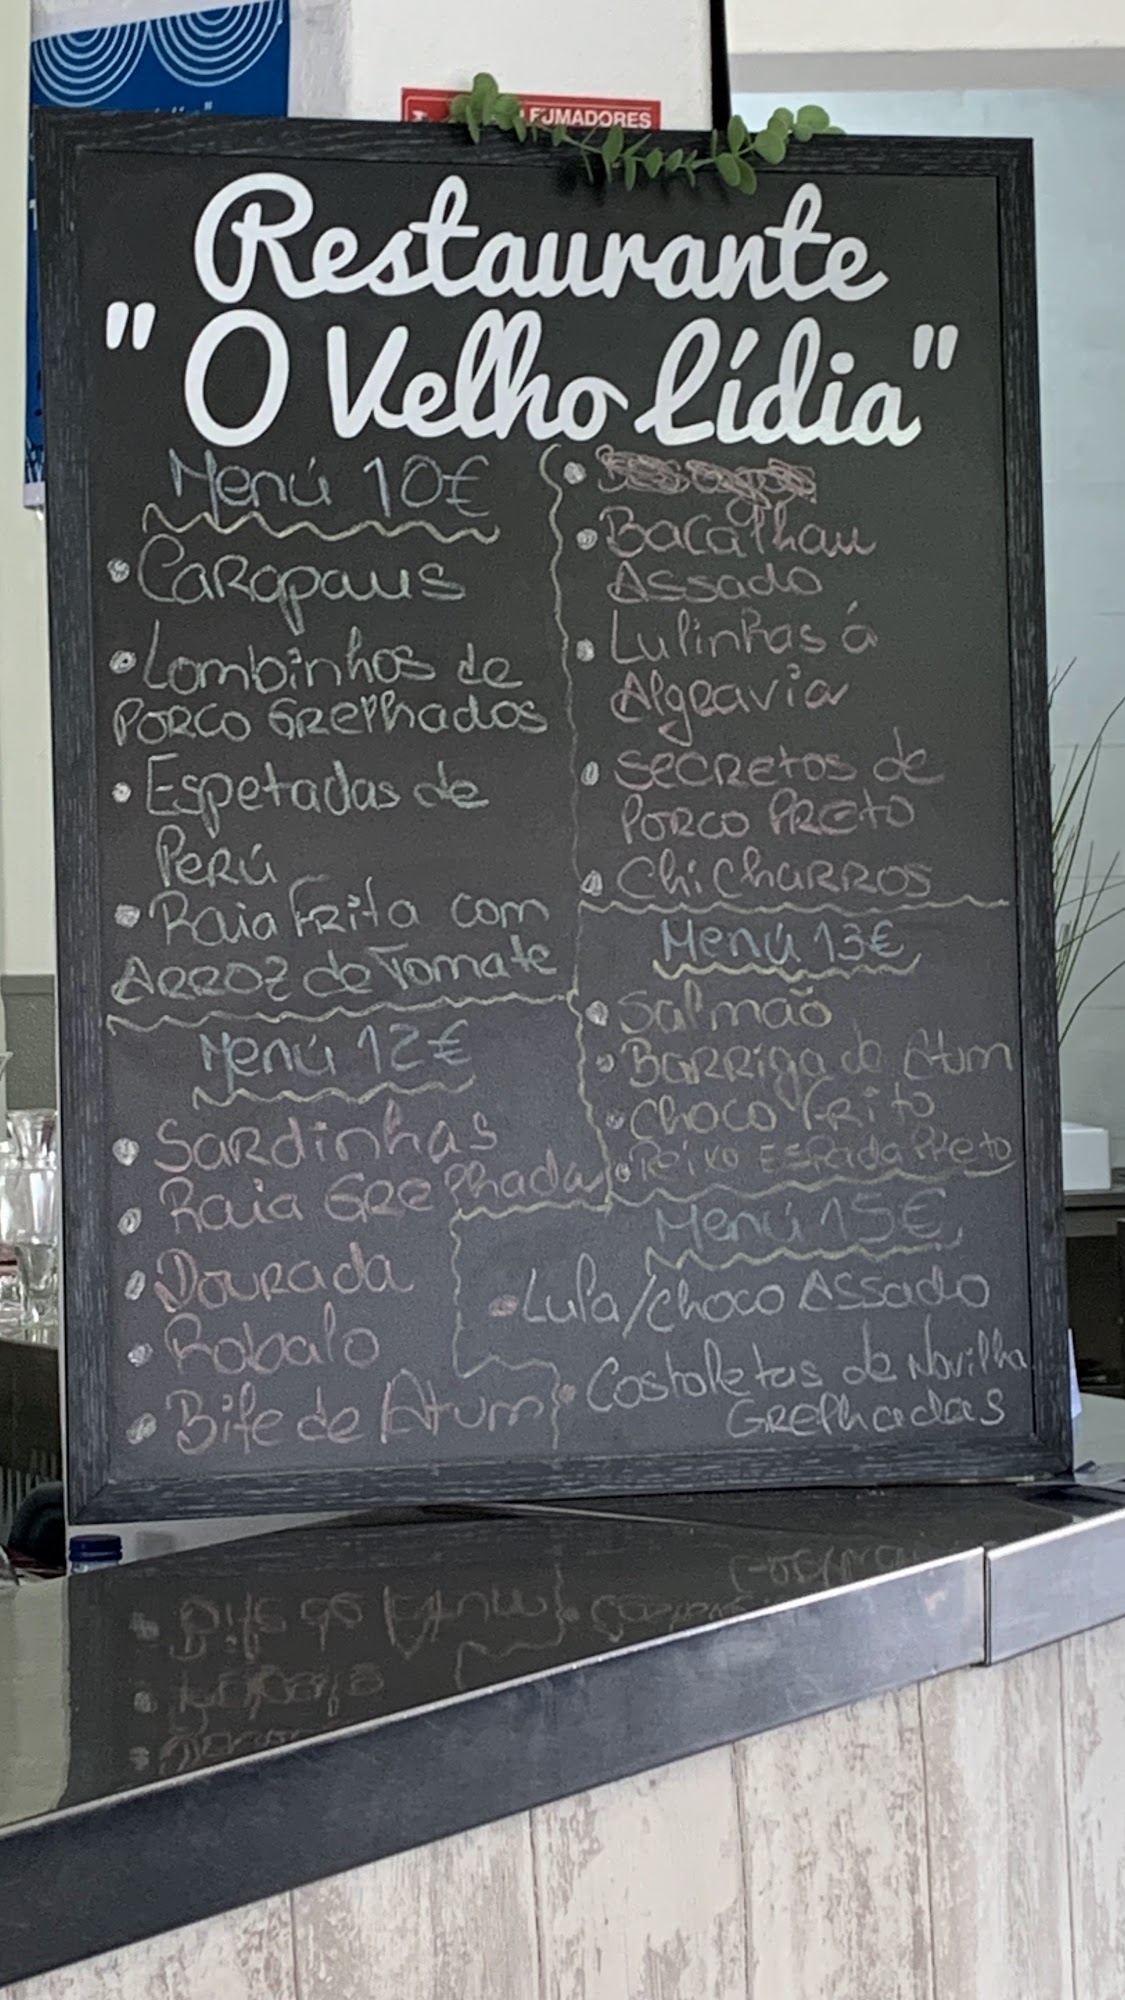 FUMADORES
Restaurante
" O Velho Lídia "
Menú 10€
• Carapaus
• Lombinhos de
Porco Grelhados
• Espetadas de
Perú
• Raia Frita com
Arroz de Tomate
Menú 12€
• Sardinhas
• Raia Grelhada
• Dourada
• Robalo
• Bife de Atum
• Bacalhau
Assado
• Lulinhas á
Algravia
• Secretos de
Porco Preto
• Chicharros
Menú 13€
• Salmão
• Barriga de Atum
• Choco Frito
• Peixo Espada Preto
Menú 15€
• Lula/choco Assado
• Costoletas de Novilha
Grelhadas